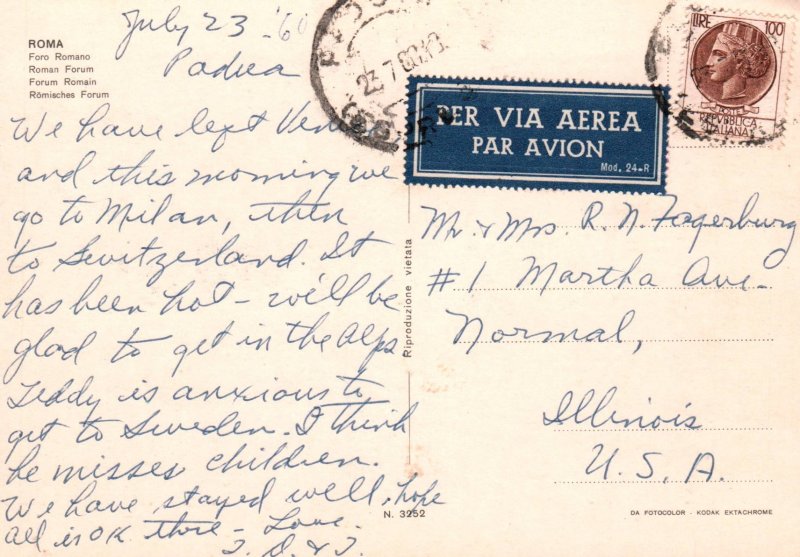 July 23 '60
Padua
ROMA
Foro Romano
Roman Forum
Forum Romain
Römisches Forum
We have left Venice
and this morning we
go to Milan, then
to Switzerland. It
has been hot - we'll be
glad to get in the Alps
Teddy is anxious to
get to Sweden. I think
he misses children.
We have stayed well, hope
all is OK there - Love.
PER VIA AEREA
PAR AVION
Mod. 24-R
LIRE 100
POSTE
REPVBBLICA
ITALIANA
23.7
Mr. & Mrs. R. N. Fagerburg
#1 Martha Ave.
Normal,
Illinois
U. S. A.
Riproduzione vietata
N. 3252
DA FOTOCOLOR - KODAK EKTACHROME